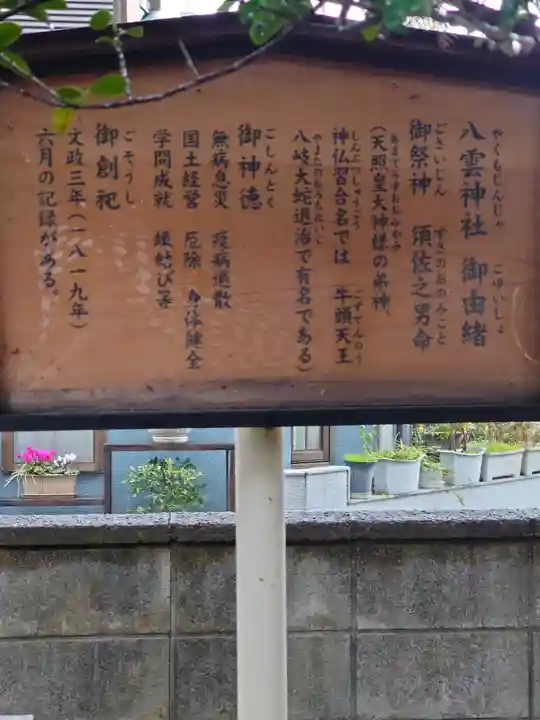 やくもじんじゃ ごゆいしょ
八雲神社 御由緒
ごさいじん すさのおのみこと
御祭神 須佐之男命
あまてらすおおみかみ
(天照皇大神様の弟神、
しんぶつしゅうごう ごずてんのう
神仏習合名では 牛頭天王
やまたのおろちたいじ
八岐大蛇退治で有名である)
ごしんとく
御神徳
無病息災 疫病退散
国土経営 厄除 身体健全
学問成就 縁結び等
ごそうし
御創祀
文政三年(一八一九年)
六月の記録がある。